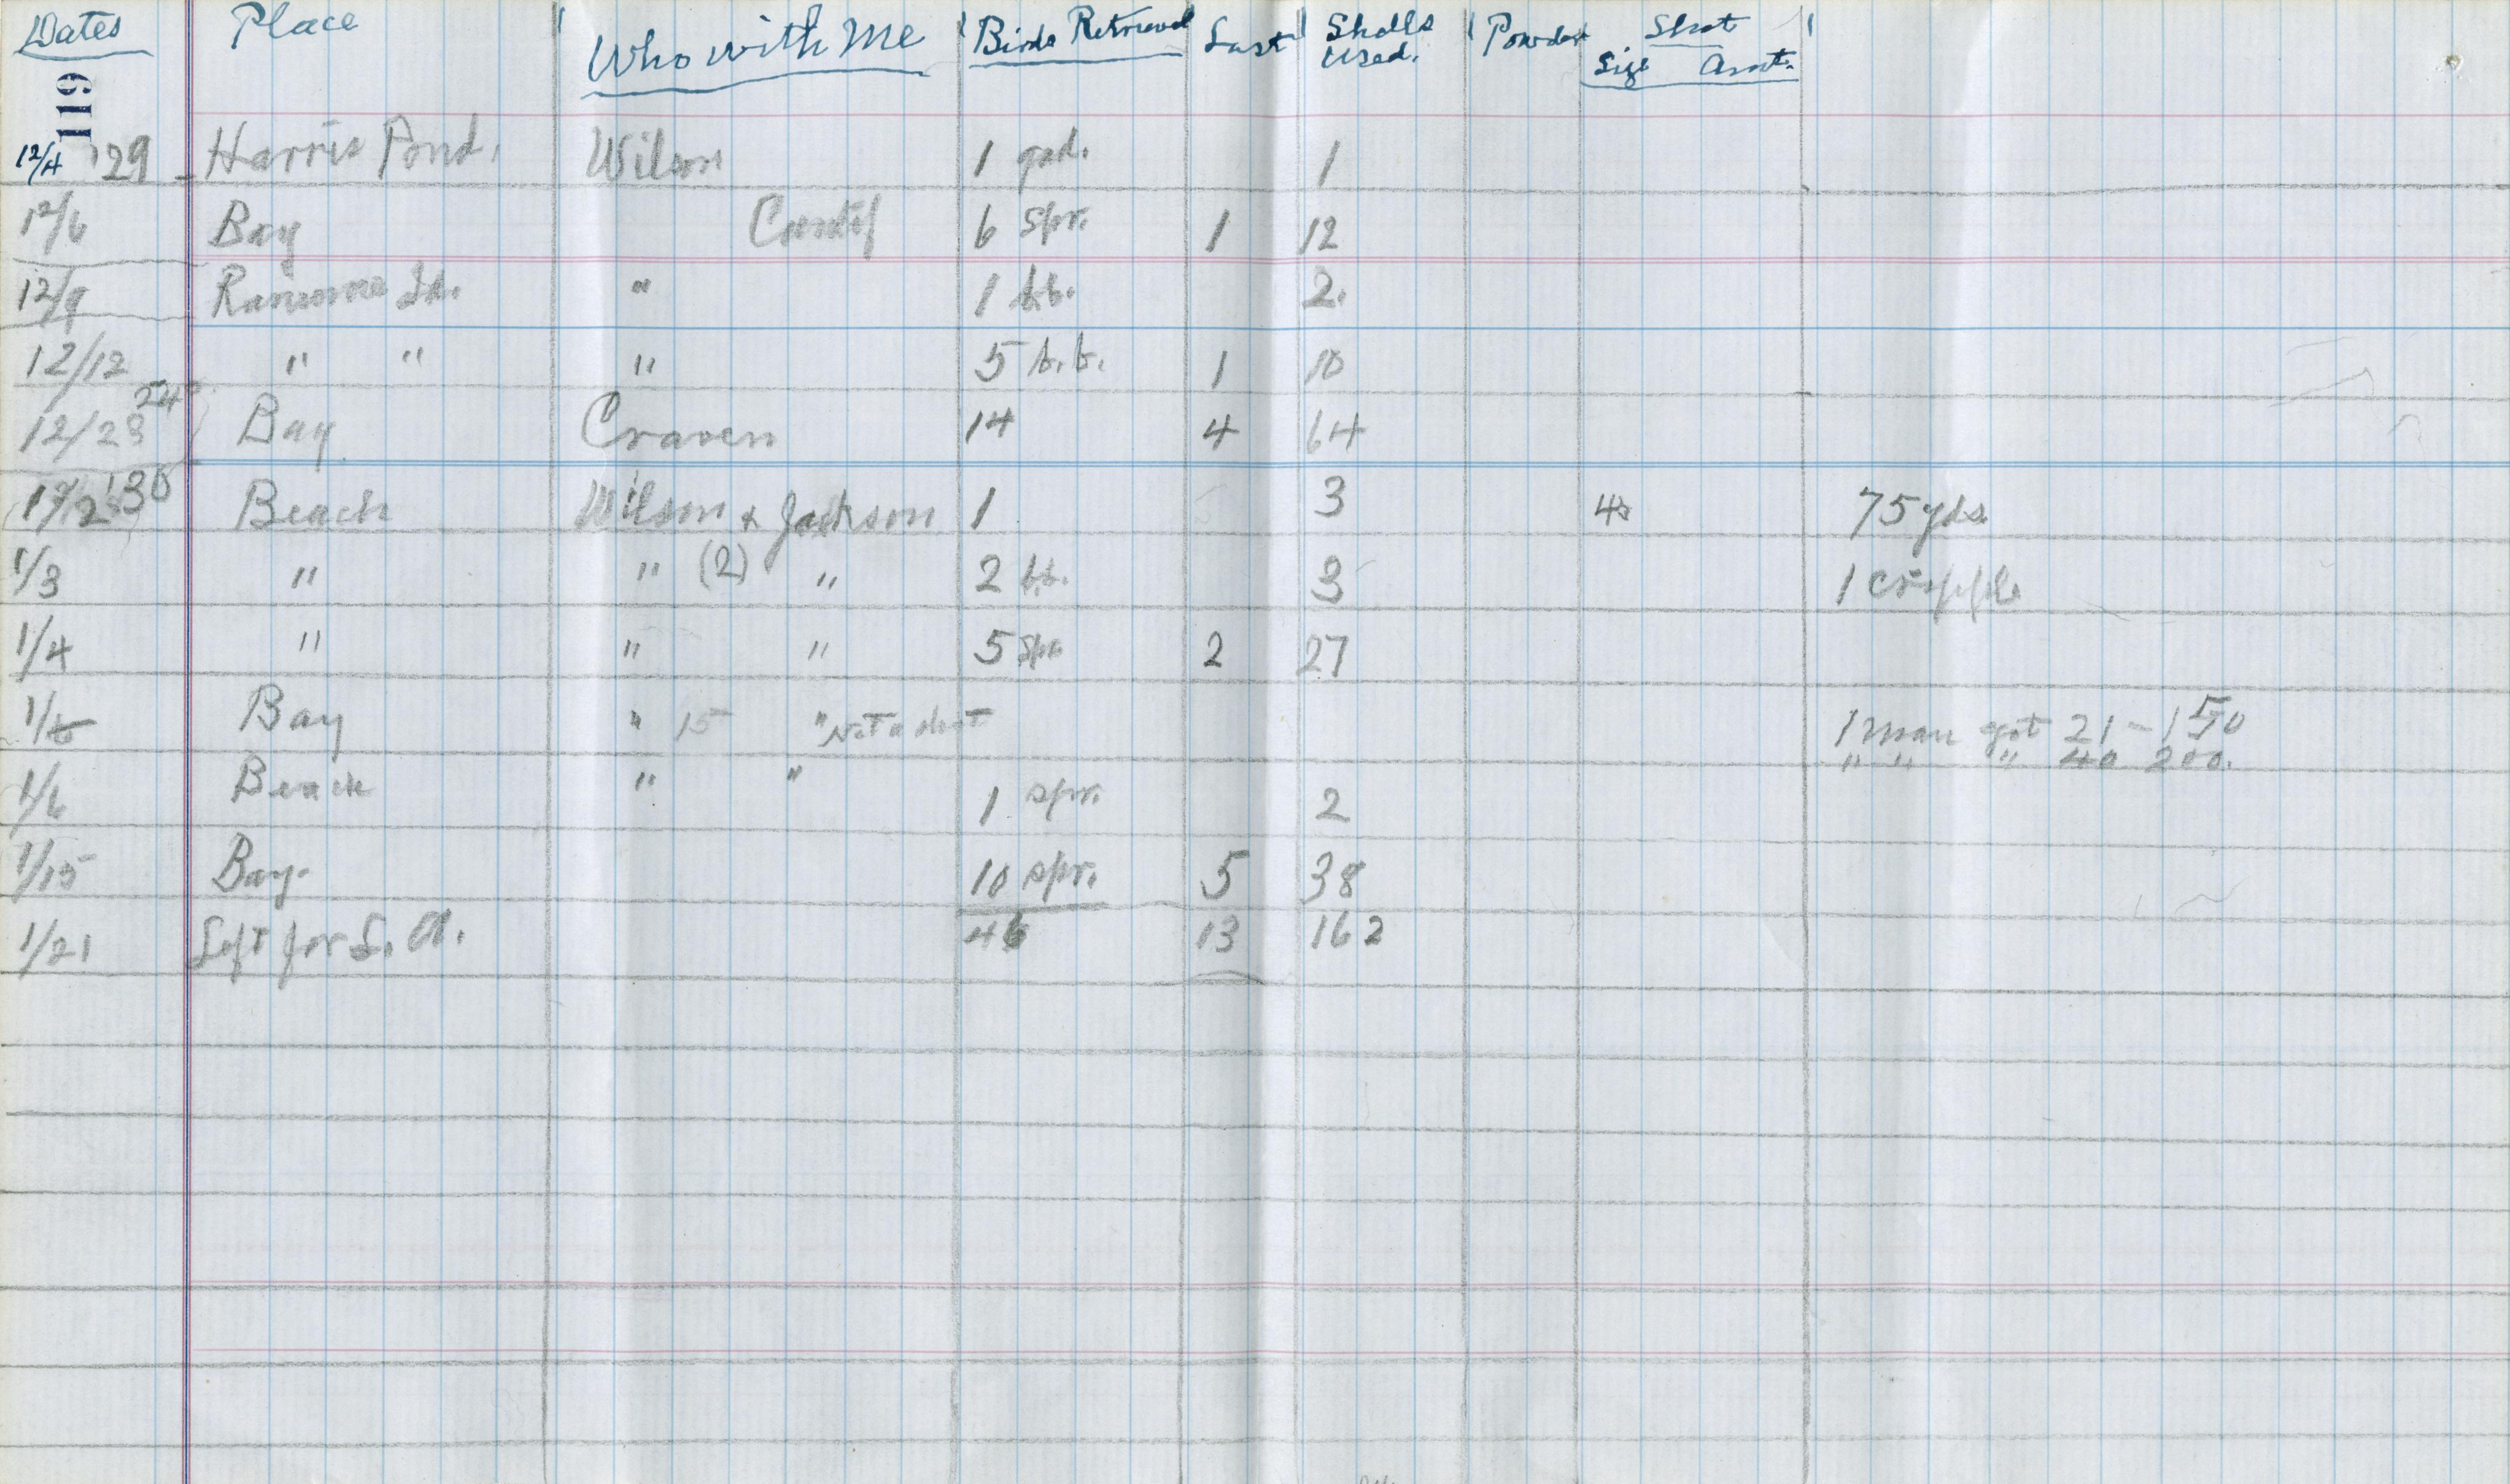 Dates Place Who with Me Birds Retrieved Lost Shells Used. Powder Shot Size Amt.
119
12/4 '29 Harris Pond. Wilson 1 gad. 1
12/6 Bay 6 Spr. 1 12
12/9 Ransome Id. " 1 b.b. 2.
12/12 " " " 5 b.b. 1 10
24
12/23 Bay Craven 14 4 64
'30 Beach Wilson & Jackson 1 3 4 75 yds.
1/3 " " (2) " 2 b.b. 3 1 cripple
1/4 " " " 5 Spr 2 27
Bay " 15 " Not a shot 1 man got 21 - 150
" " " 40 200.
1/6 Beach " " 1 spr. 2
1/15 Bay. 10 spr. 5 38
1/21 Left for L. A. 46 13 162